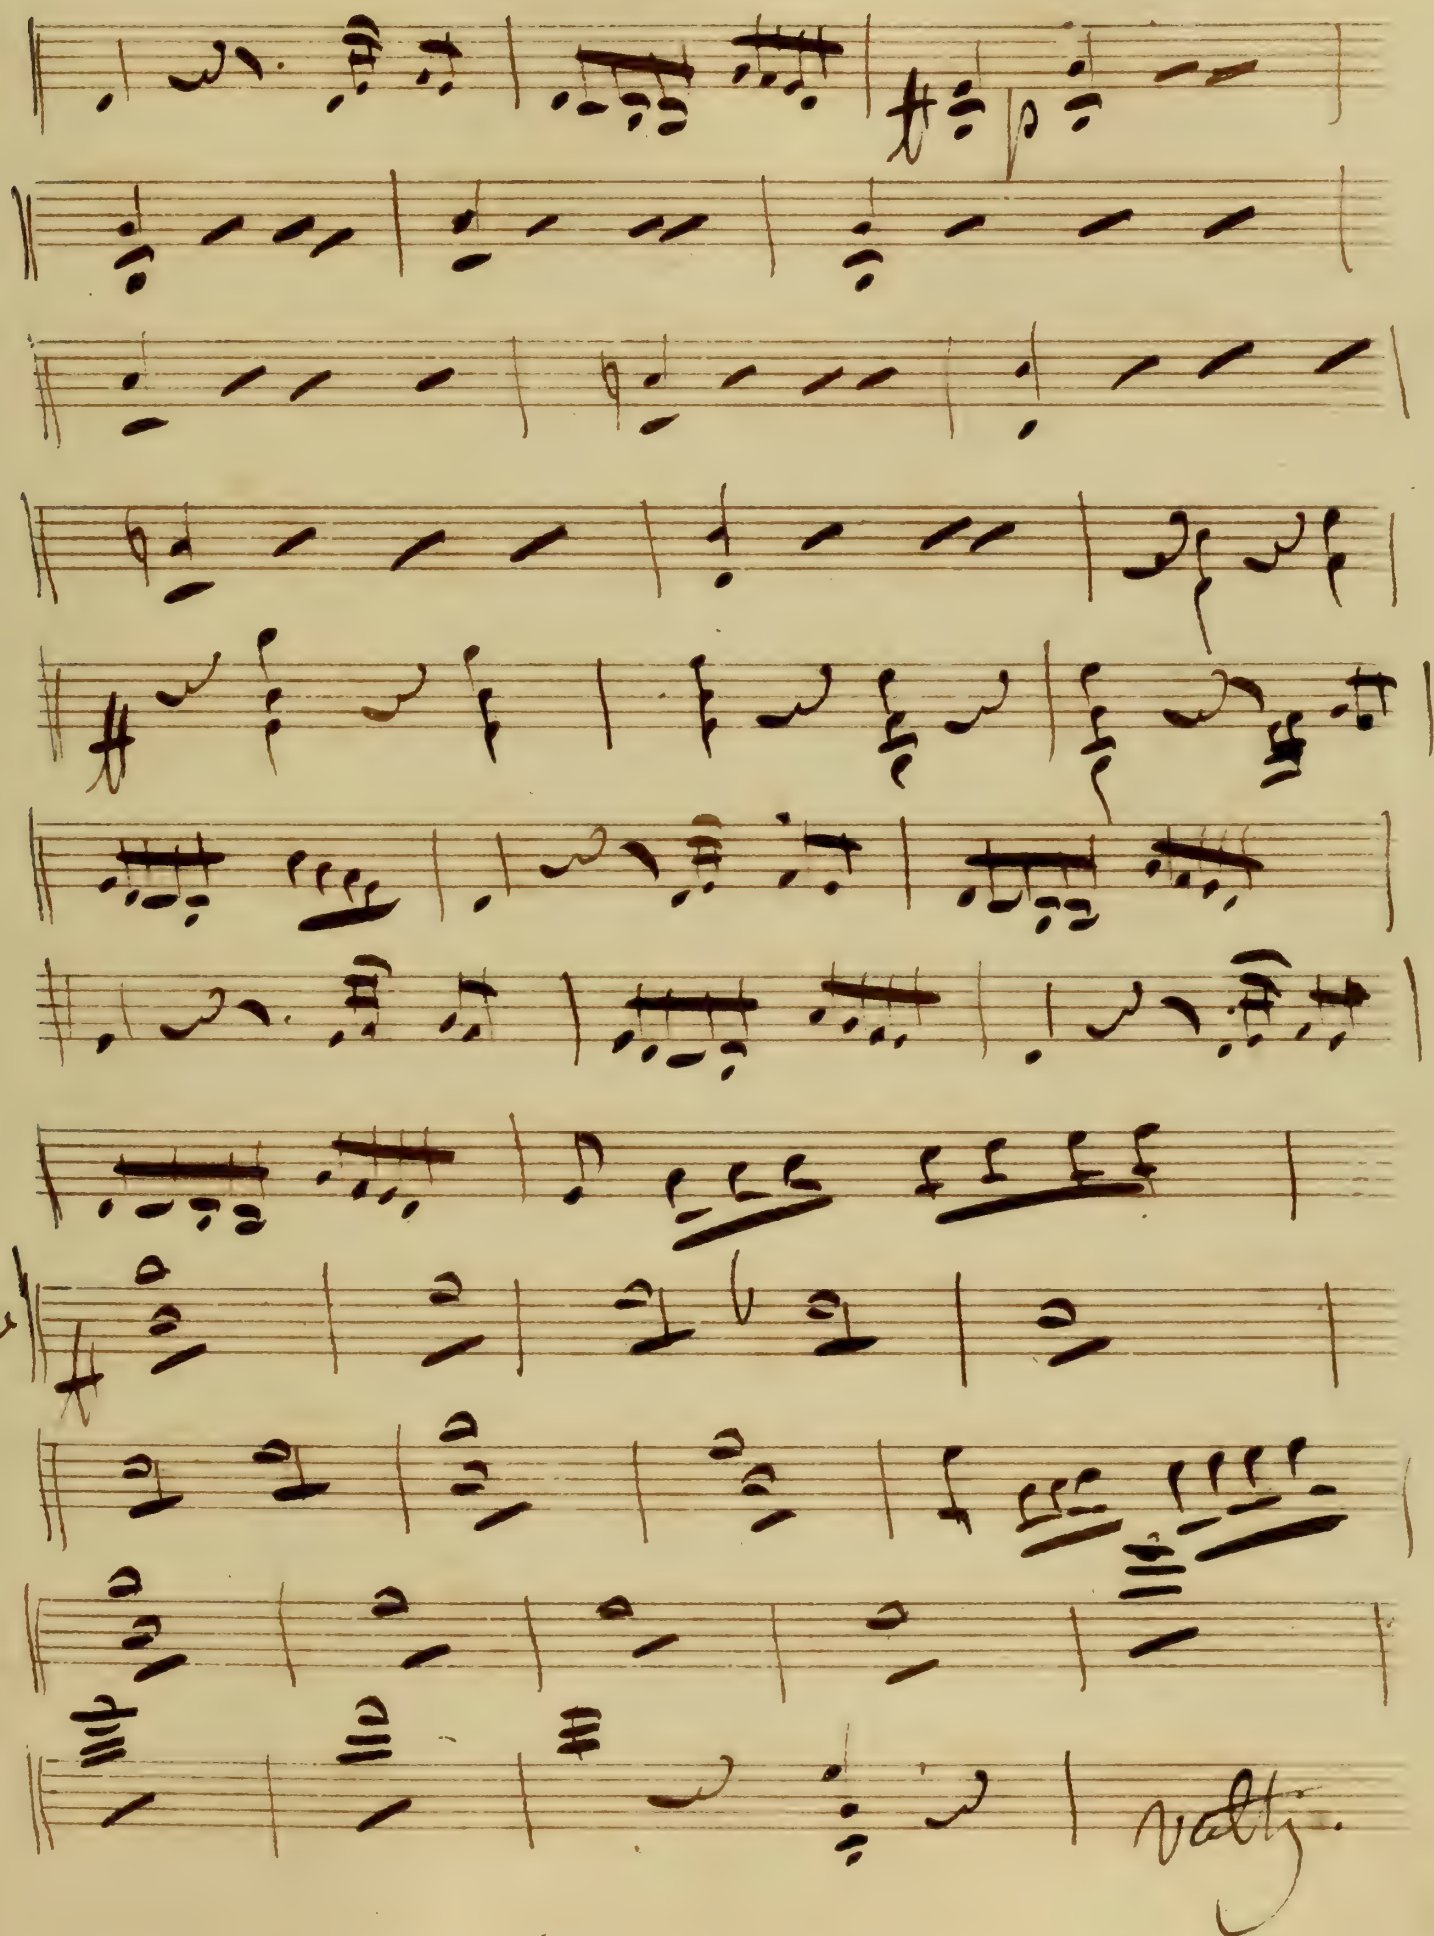 p
volti.